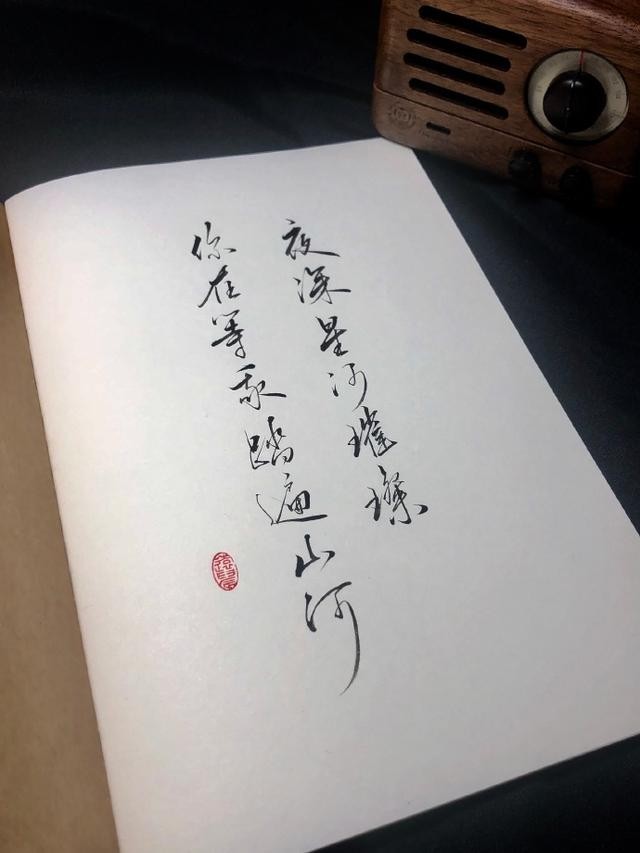 夜深星河璀璨
你在等我踏遍山河